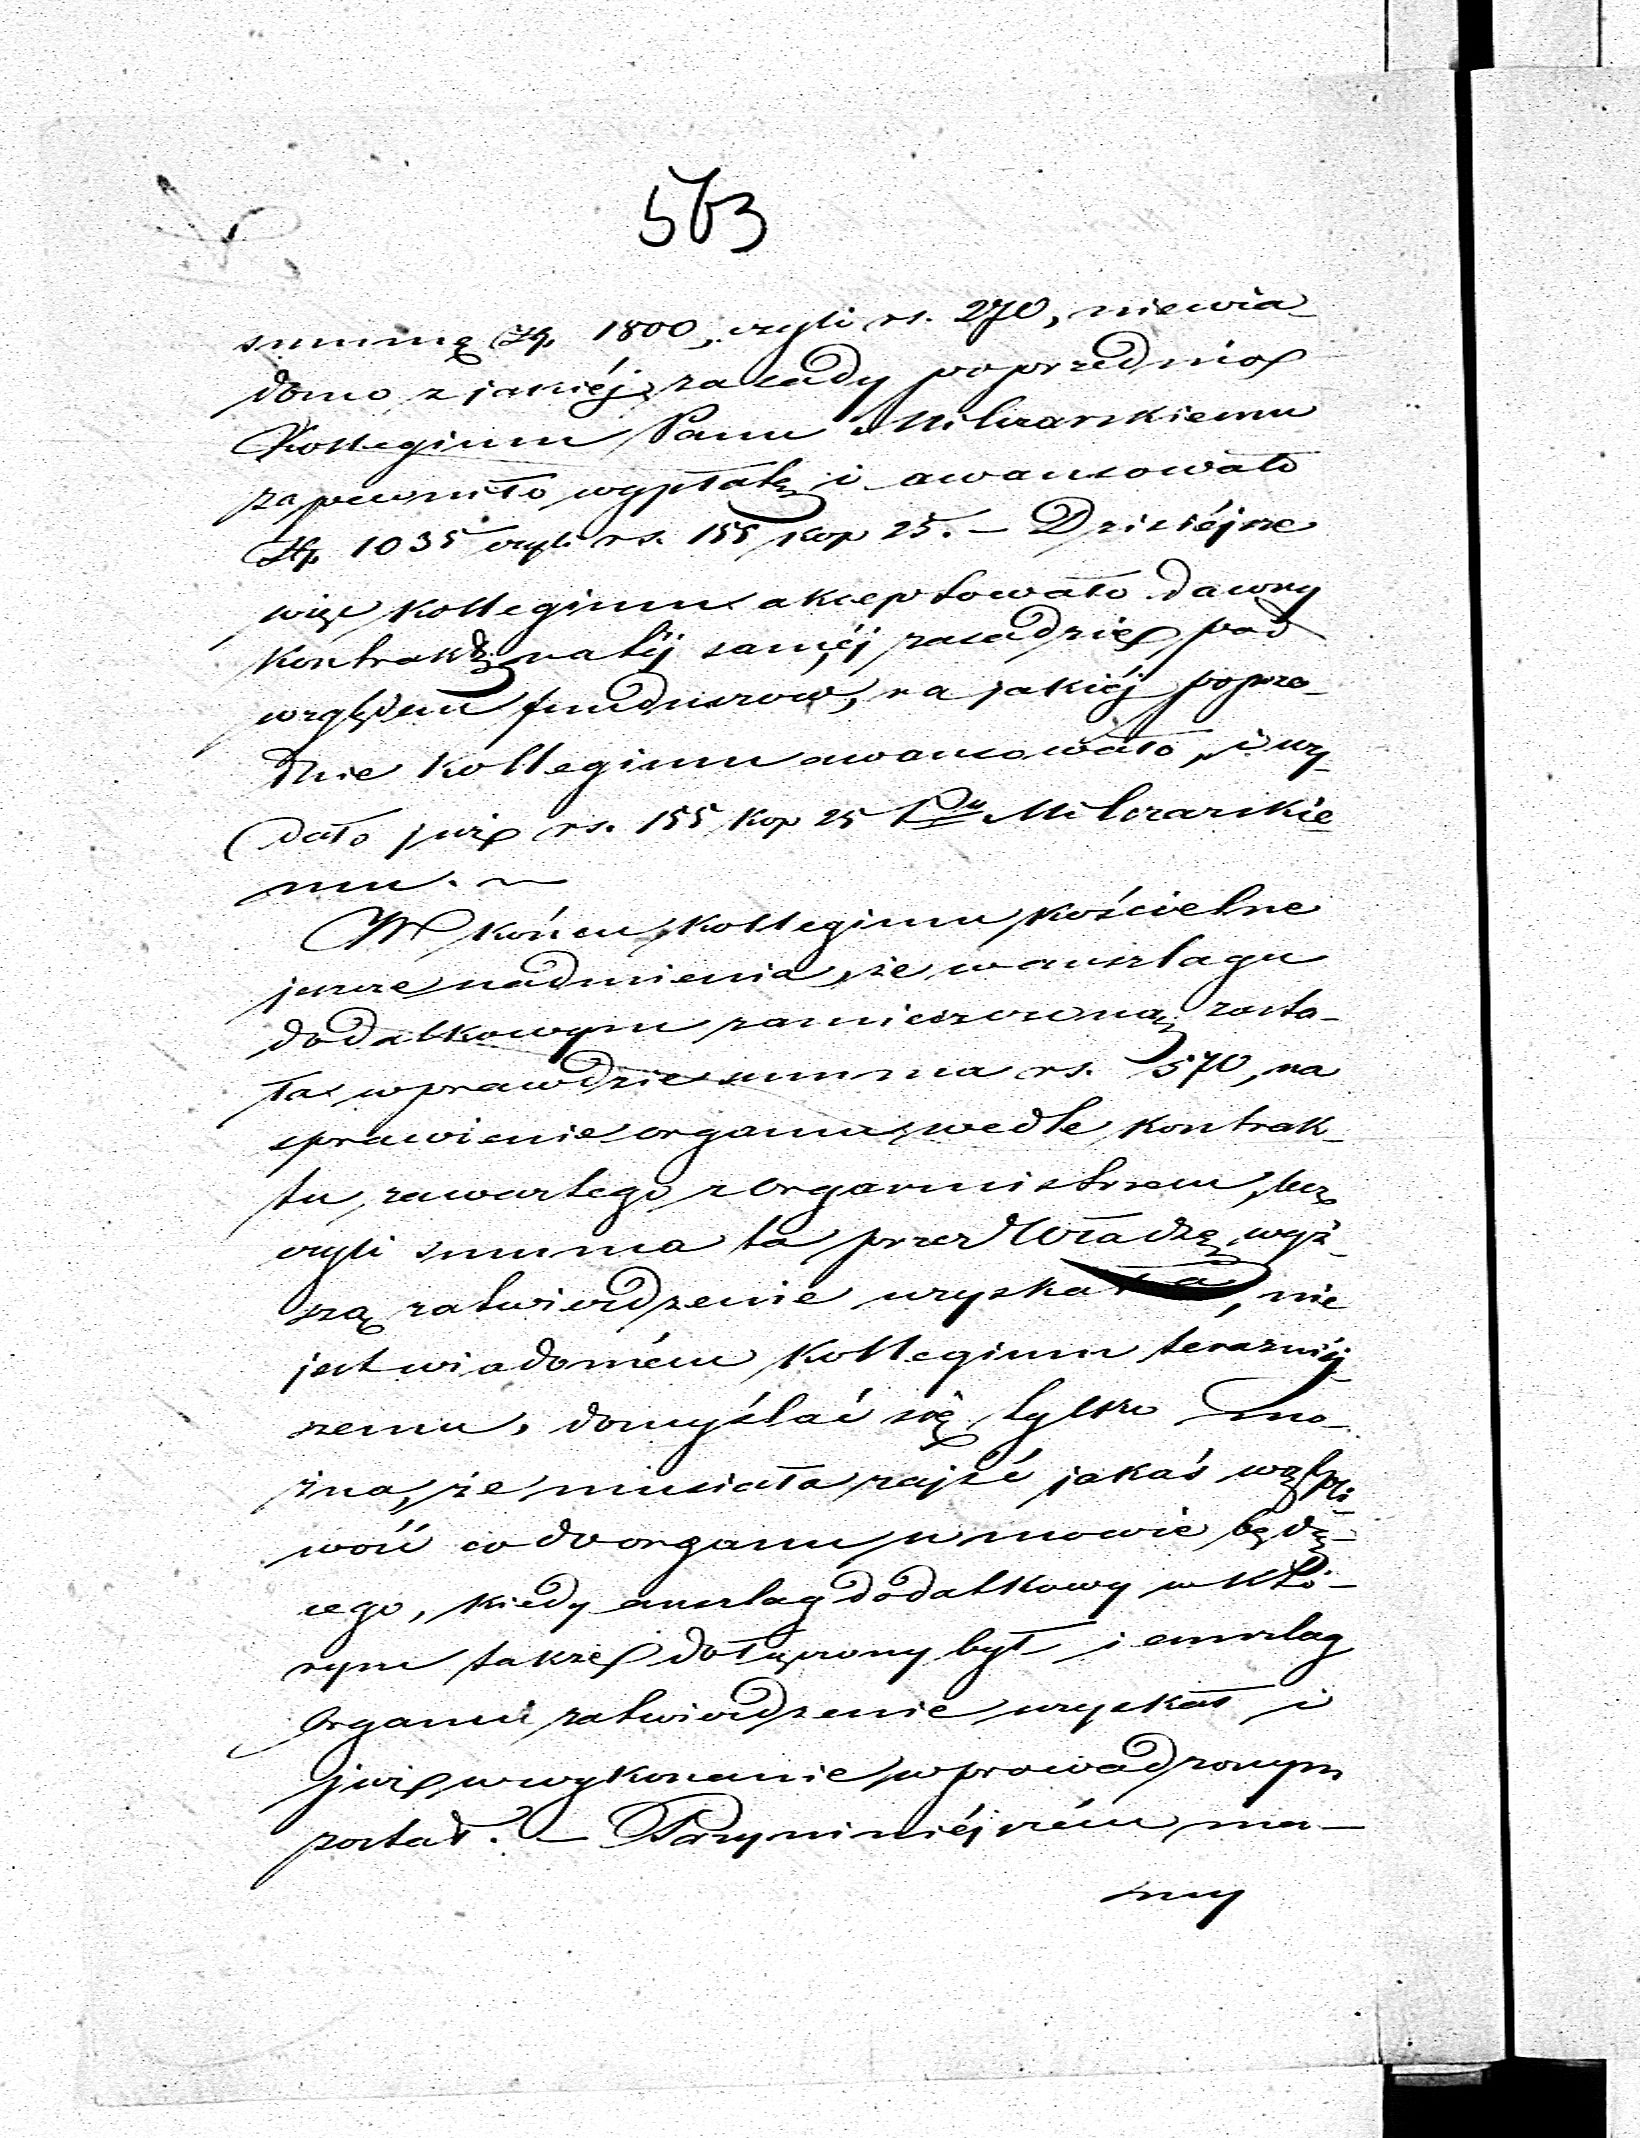 563
summę Złp. 1800, czyli rs. 270, niewia-
domo z jakiéj zasady poprzednio
Kollegium Panu Milczarskiemu
zapewniło wypłatę i awansowało
Złp. 1035 czyli rs. 155 kop 25. – Dzisiéjsze
więc Kollegium akceptowało dawny
Kontrakt na téj saméj zasadzie pod
względem funduszów, na jakiéj poprze-
dnie Kollegium awansowało, i wy-
dało już rs. 155 kop 25 Pu Milczarskie
mu. –
W końcu Kollegium kościelne
jeszcze nadmienia, że w anszlagu
dodatkowym zamieszczoną zosta-
ła wprawdzie summa rs. 570, na
sprawienie organu wedle kontrak-
tu zawartego z Organmistrzem, lecz
czyli summa ta przez Władzę wyż-
szą zatwierdzenie uzyskała, nie
jest wiadomém Kollegium teraźniéj-
szemu, domyślać się tylko mo-
żna, że musiała zajść jakaś wątpli-
wość co do organu w mowie będą-
cego, kiedy anszlag dodatkowy w któ-
rym także dołączony był i anszlag
Organu zatwierdzenie uzyskał i
już w wykonanie wprowadzonym
został. – Przy niniéjszém ma-
my